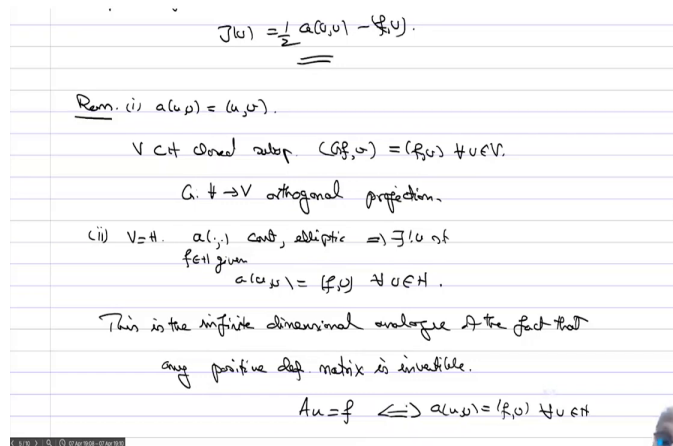 J(v) = 1/2 a(v,v) - (f,v).
Rem. (i) a(u,v) = (u,v).
V ⊂ H closed subsp. (Gf,v) = (f,v) ∀ v ∈ V.
G: H → V orthogonal projection.
(ii) V = H. a(.,.) cont, elliptic ⇒ ∃! u st
f ∈ H given
a(u,v) = (f,v) ∀ v ∈ H.
This is the infinite dimensional analogue of the fact that
any positive def. matrix is invertible.
Au = f ⇔ a(u,v) = (f,v) ∀ v ∈ H
5/10 07 Apr 19:08 - 07 Apr 19:10